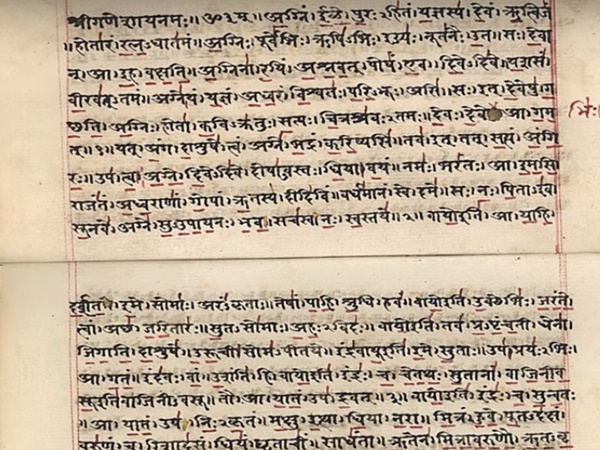 श्रीगणेशायनमः॥ॐ॥ अग्निं। ईळे। पुरःऽहितं। यज्ञस्य। देवं। ऋत्विजं
। होतारं। रत्नऽधातमं॥ अग्निः। पूर्वेभिः। ऋषिऽभिः। ईड्यः। नूतनैः। उत। सः। देवा
न्। आ। इह। वक्षति॥ अग्निना। रयिं। अश्नवत्। पोषं। एव। दिवेऽदिवे। यशसं
वीरवत्ऽतमं॥ अग्ने। यं। यज्ञं। अध्वरं। विश्वतः। परिऽभूः। असि। सः। इत्। देवेषु। ग
च्छति॥ अग्निः। होता। कविऽक्रतुः। सत्यः। चित्रश्रवःऽतमः। देवः। देवे। आ। गम
भिः।
त्॥१॥ यत्। अंग। दाशुषे। त्वं। अग्ने। भद्रं। करिष्यसि। तव। इत्। तत्। सत्यं। अंगि
रः॥ उप। त्वा। अग्ने। दिवेऽदिवे। दोषाऽवस्तः। धिया। वयं। नमः। भरंतः। आ। इमसि
राजंतं। अध्वराणां। गोपां। ऋतस्य। दीदिविं। वर्धमानं। स्वे। दमे॥ सः। नः। पिताऽइव
सूनवे। अग्ने। सुऽउपायनः। भव। सचस्व। नः। स्वस्तये॥२॥ वायोइति। आ। याहि।
दर्शत। इमे। सोमाः। अरंऽकृताः॥ तेषां। पाहि। श्रुधि। हवं॥ वायोइति। उक्थेभिः। जरंते
त्वां। अच्छ। जरितारः॥ सुतऽसोमाः। अहःऽविदः॥ वायोइति। तव। प्रऽपृंचती। धेना
जिगाति। दाशुषे। उरूची। सोमऽपीतये॥ इंद्रवायूइति। इमे। सुताः। उप। प्रयःऽभिः।
आ। गतं। इंदवः। वां। उशंति। हि॥ वायोइति। इंद्रः। च। चेतथः। सुतानां। वाजिनीव
सूइतिवाजिनीऽवसू। तौ। आ। यातं। उप। द्रवत्॥३॥ वायोइति। इंद्रः। च। सुन्वतः
। आ। यातं। उप। निःऽकृतं। मक्षु। इत्था। धिया। नरा॥ मित्रं। हुवे। पूतऽदक्षं
वरुणं। च। रिशादसं। धियं। घृताचीं। साधंता॥ ऋतेन। मित्रावरुणौ। ऋतऽवृ